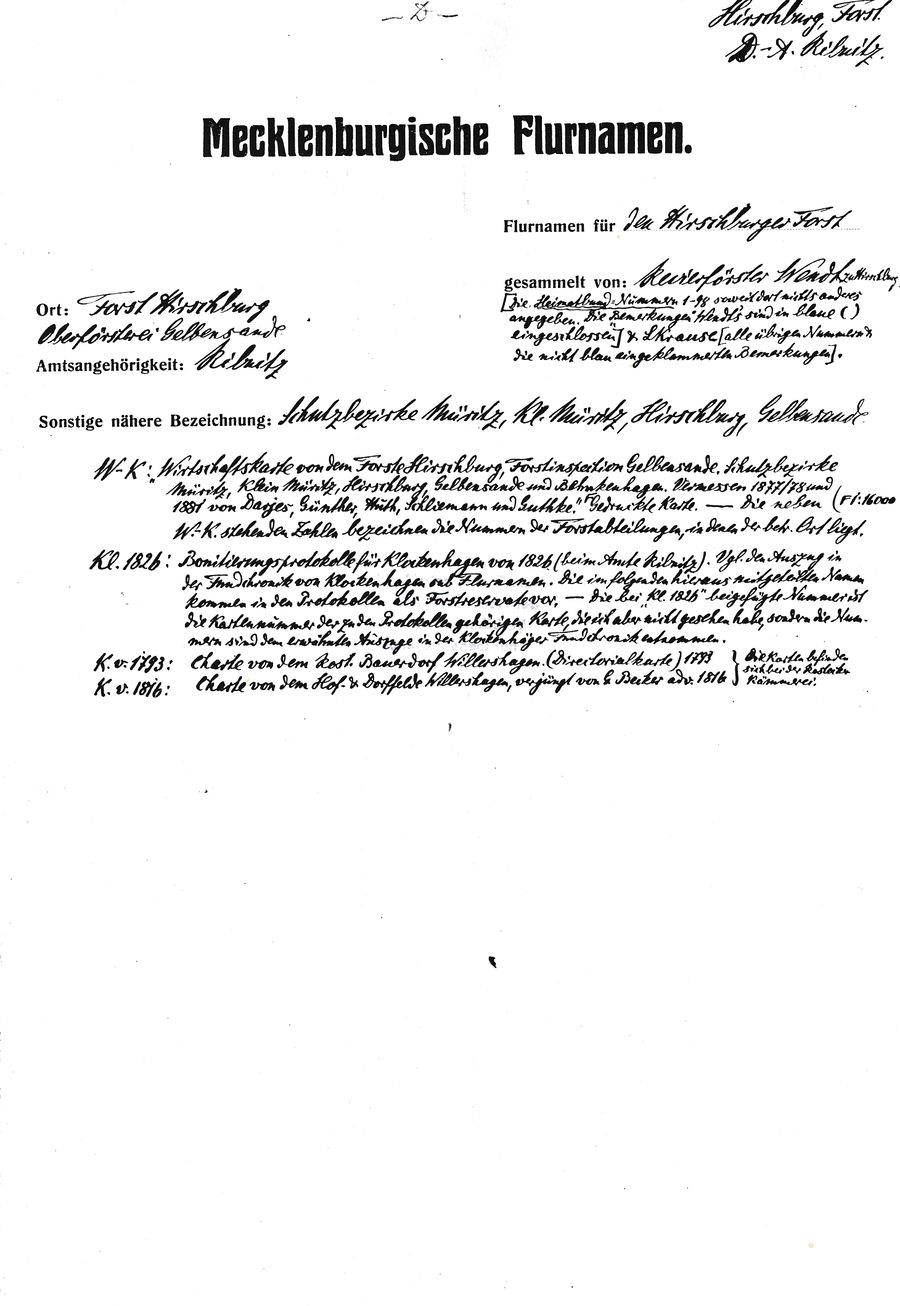 — D —
Hirschburg, Forst.
D.-A. Ribnitz.
Mecklenburgische Flurnamen.
Flurnamen für den Hirschburger Forst
gesammelt von: Revierförster Wendt zu Hirschburg
[die Heimatbund-Nummern 1-98 soweit dort nichts anderes
angegeben. Die Bemerkungen Wendt's sind in blaue ( )
eingeschlossen] & L Krause [alle übrigen Nummern &
die nicht blau eingeklammerten Bemerkungen].
Ort: Forst Hirschburg
Oberförsterei Gelbensande
Amtsangehörigkeit: Ribnitz
Sonstige nähere Bezeichnung: Schutzbezirke Müritz, Kl. Müritz, Hirschburg, Gelbensande
W-K: "Wirtschaftskarte von dem Forste Hirschburg, Forstinspection Gelbensande. Schutzbezirke
Müritz, Klein Müritz, Hirschburg, Gelbensande und Behnkenhagen. Vermessen 1877/78 und
1881 von Darjes, Günther, Huth, Schliemann und Guthke." Gedruckte Karte. — Die neben (F 1:16000
W.-K. stehenden Zahlen bezeichnen die Nummern der Forstabteilungen, in denen der betr. Ort liegt.
Kl. 1826: Bonitierungsprotokolle für Klockenhagen von 1826 (beim Amte Ribnitz). Vgl. den Auszug in
der Fundchronik von Klockenhagen und Flurnamen. Die im folgenden hieraus mitgeteilten Namen
kommen in den Protokollen als Forstreservate vor. — Die bei "Kl. 1826" beigefügte Nummer ist
die Kartennummer der zu den Protokollen gehörigen Karte, die ich aber nicht gesehen habe, sondern die Num-
mern sind dem erwähnten Auszuge in der Klockenhäger Fundchronik entnommen.
K. v. 1793: Charte von dem Rost. Bauerdorf Willershagen. (Directorialkarte) 1793 } Die Karten befinden
sich bei der Rostocker
K. v. 1816: Charte von dem Hof- & Dorffelde Willershagen, verjüngt von G. Becker adv. 1816 } Kämmerei.